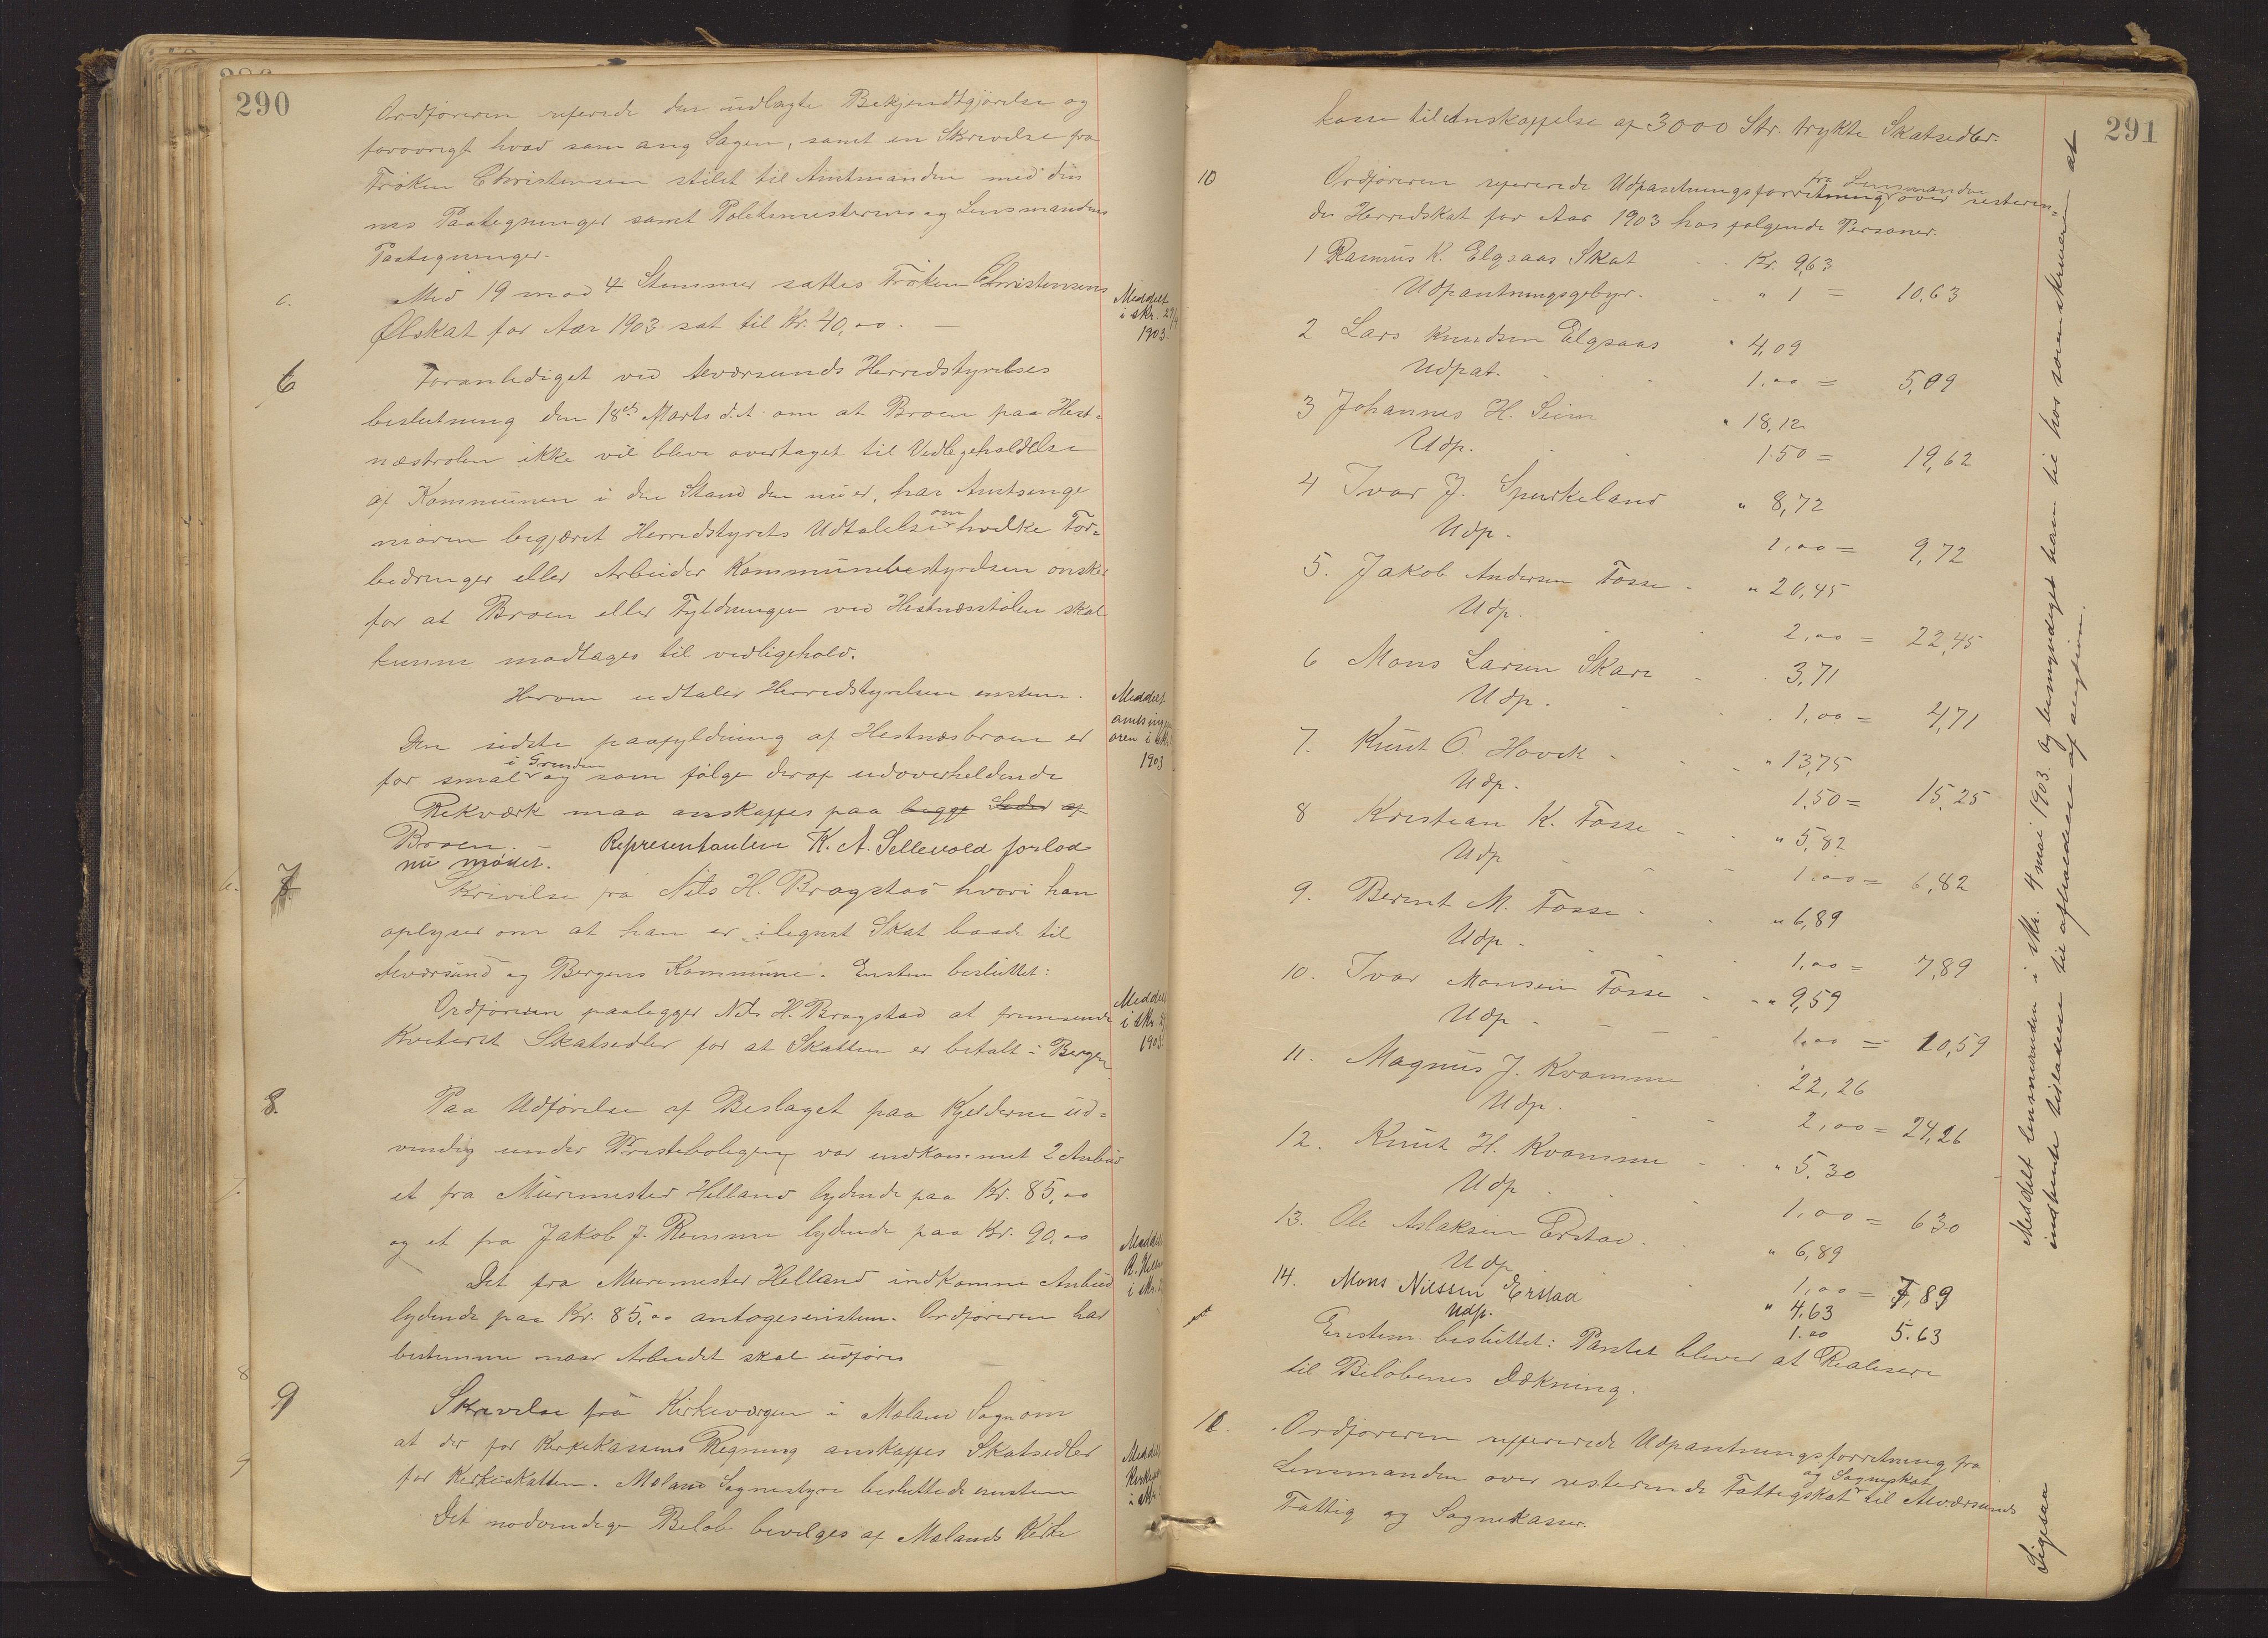 290
Ordføreren referede den udlagte Bekjendtgjørelse og
forøvrigt hvad som ang Sagen, samt en Skrivelse fra
Frøken Christensen stilet til Amtmanden med din
nes Paategninger samt Politimesterens og Lensmandens
Paategninger.
c.
Med 19 mod 4 Stemmer sattes Frøken Christensens
Ølskat for Aar 1903 sat til Kr. 40,00. —
Meddelt
i skr. 27/4
1903.
6
Foranlediget ved Alværsunds Herredstyrelses
beslutning den 18de Marts d.A. om at Broen paa Hest=
næstrolen ikke vil bleve overtaget til Vedlegeholdelse
af Kommunen i den Stand den nu er, har Amtsinge
niøren begjæret Herredstyrets Udtalelse om hvilke For=
bedringer eller Arbeider Kommunebestyrelsen ønsker
for at Broen eller Fyldningen ved Hestnæsstolen skal
kunne modtages til vedligehold.
Herom udtaler Herredstyrelsen enstem.
Den sidste paafyldning af Hestnæsbroen er
for smal i Grunden og som følge deraf udoverheldende
Rekværk maa anskaffes paa begge Sider af
Broen. — Representanten K. A. Sellevold forlod
nu mødet.
Meddelt
amtsingeni
øren i skr.
1903
7.
Skrivelse fra Nils H. Bragstad hvori han
oplyser om at han er ilignet Skat baade til
Alværsund og Bergens Kommune. Enstem besluttet:
Ordføreren paalegger Nils H. Bragstad at fremsende
Kviteret Skatsedler for at Skatten er betalt i Bergen
Meddelt
i skr.
1903
8.
Paa Udførelse af Beslaget paa Kjelderne ud=
vendig under Præsteboligen var indkommet 2 Anbud
et fra Muremester Helland lydende paa Kr. 85,00
og et fra Jakob J. Remme lydende paa Kr. 90,00
Det fra Muremester Helland indkomne Anbud
lydende paa Kr. 85,00 antoges enstem. Ordføreren har
bestemme naar Arbeidet skal udføres
Meddelt
i skr.
9
Skrivelse fra Kirkeværgen i Mæland Sogn om
at der for Kirkekassens Regning anskaffes Skatsedler
for Kirkeskatten. Mæland Sognestyre besluttede enstem
Det nødvendige Beløb bevilges af Mælands Kirke
Meddelt
i skr.
291
kasse til Anskaffelse af 3000 Str. trykte Skatsedler.
10
Ordføreren refererede Udpantningsforretning fra Lensmanden over resteren=
de Herredskat for Aar 1903 hos følgende Personer.
1 Rasmus K. Elgsaas Skat Kr. 9,63
Udpantningsgebyr. " 1 = 10,63
2 Lars Knudsen Elgsaas " 4,09
Udpat. 1.00 = 5,09
3 Johannes H. Seim " 18,12
Udp. 1.50 = 19,62
4 Ivar J. Spurkeland " 8,72
Udp. 1,00 = 9,72
5. Jakob Andersen Fosse " 20,45
Udp. 2,00 = 22,45
6 Mons Larsen Skare 3,71
Udp. 1,00 = 4,71
7. Knut O. Hovek " 13,75
Udp. 1.50 = 15,25
8 Kristian K. Fosse " 5,82
Udp 1,00 = 6,82
9. Bernt M. Fosse " 6,89
Udp. 1,00 = 7,89
10. Ivar Monsen Fosse " 9,59
Udp 1.00 = 10,59
11. Magnus J. Kvamme 22,26
Udp. 2,00 = 24,26
12. Knut H. Kvamme " 5.30
Udp 1,00 = 630
13. Ole Aslaksen Erstad " 6,89
Udp 1,00 = 7,89
14. Mons Nilssen Erstad " 4,63
Udp. 1.00 5.63
Enstem. besluttet: Pantet bliver at Realisere
til Beløbenes Dækning.
11.
Ordføreren refererede Udpantningsforretning fra
Lensmanden over resterende Fattigskat og Sogneskat til Alværsunds
Fattig og Sognekasser.
Meddelt lensmanden i skr. 4 mai 1903. og bemyndiget ham til hos sorenskriveren at
indhente tilladelse til afholdelse af auktion.
Ligesaa